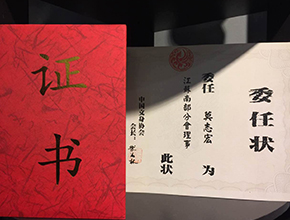 证书
委任状
委任 莫志宏 为
江苏南部分會理事
此状
中国文身协会
会长：